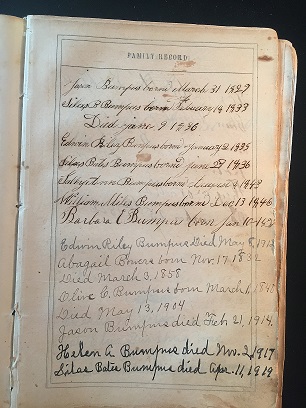 FAMILY RECORD
Bumpus born March 31 1829
Silas B Bumpus born 1833
Died june 9 1836
Edwin Riley Bumpus born 1835
Silas Bates Bumpus born june 29 1836
Bumpus born 1842
William Miles Bumpus born Dec 13 1846
Barbara E Bumpus born Jan 10
Edwin Riley Bumpus Died May 8, 1912
Abagail Bowers born Nov. 17 1832
Died March 3, 1858
Olive C. Bumpus born March 1,
Died May 13, 1904
Jason Bumpus died Feb 21, 1914.
Helen A Bumpus died Nov. 2, 1917
Silas Bates Bumpus died Apr. 11, 1919